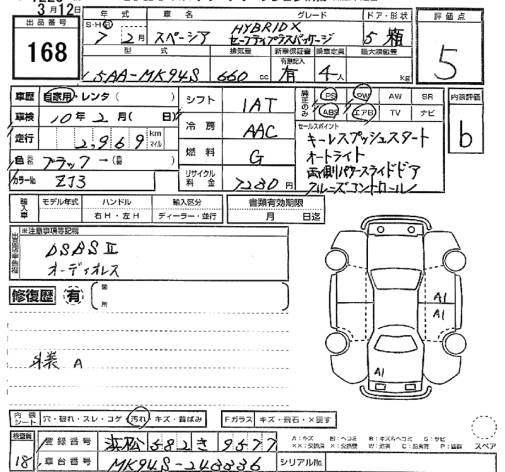 3月12日
出品番号
168
年式 車名 グレード ドア・形状
S・H
7年2月 スペーシア HYBRID X セーフティプラスパッケージ 5 箱
評価点
5
型式 排気量 新車保証書 乗車定員 最大積載量
有無記入
5AA-MK94S 660cc 有 4人 kg
車歴 自家用・レンタ( )
車検 10年2月( 日)
走行 2,969 km マイル
色 ブラック→(黒 )
カラーNo ZJ3
シフト IAT
冷房 AAC
燃料 G
リサイクル料金 7280円
純正のみ PS PW AW SR
ABS エアB TV ナビ
内装評価
b
セールスポイント
キーレスプッシュスタート
オートライト
両側パワースライドドア
クルーズコントロール
輸入車 モデル年式 ハンドル 輸入区分
右H・左H ディーラー・並行
書類有効期限
月 日迄
※注意事項等記載
DSBSⅡ
オーディオレス
修復歴 有
外装 A
A1
A1
A1
内装シート 穴・破れ・スレ・コゲ・汚れ・キズ・黄ばみ
Fガラス キズ・飛石・X要す
検査員
18
登録番号 浜松 582 き 9577
車台番号 MK94S-248836
シリアルNo.
スペア